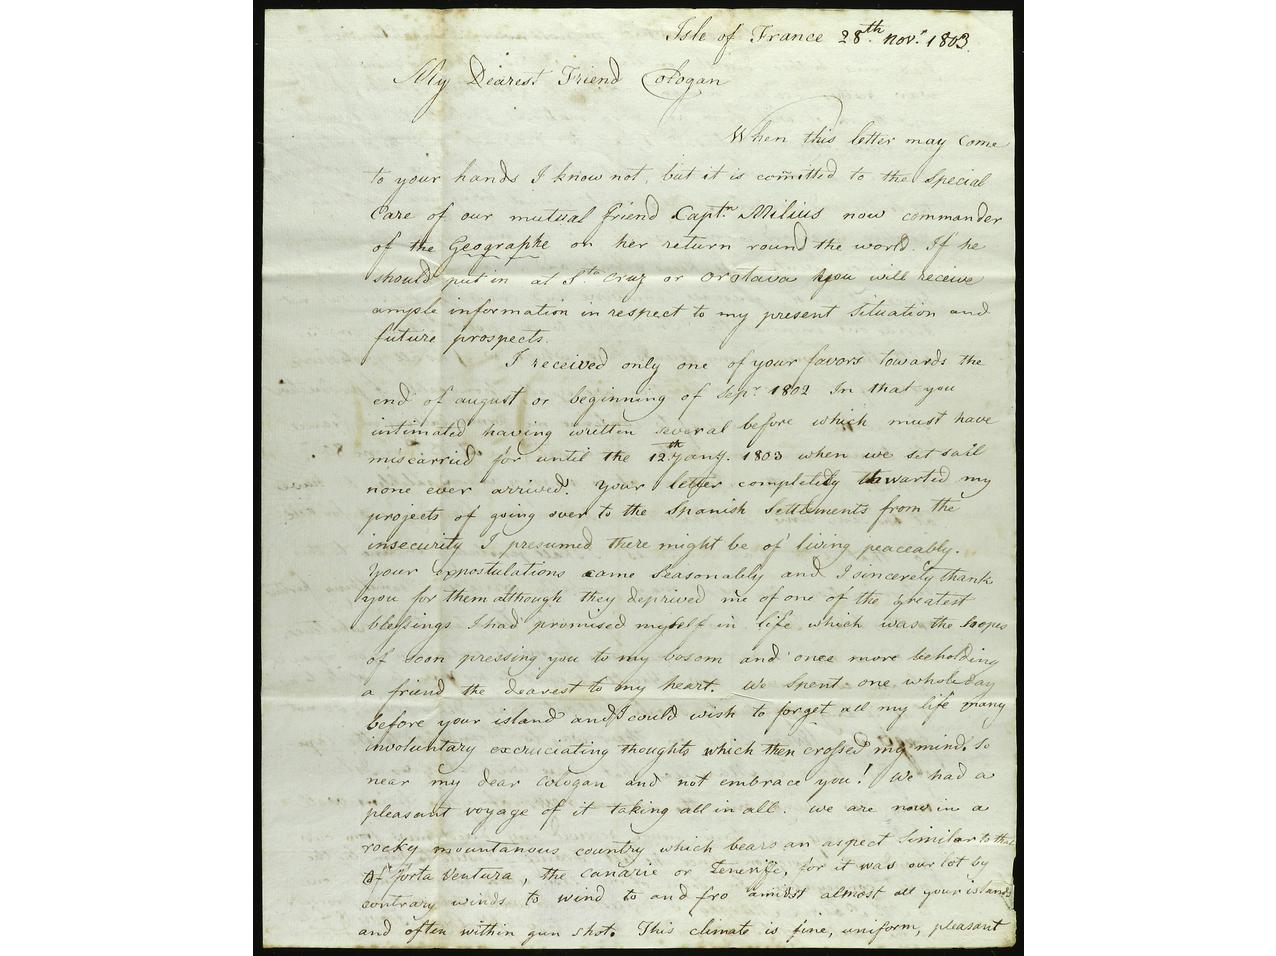 Isle of France 28th Novr. 1803.
My Dearest Friend Cologan
When this letter may come
to your hands I know not, but it is comitted to the special
Care of our mutual friend Captn. Milius now commander
of the Geographe on her return round the world. If he
should put in at Sta. Cruz or Orotava you will receive
ample information in respect to my present situation and
future prospects.
I received only one of your favors towards the
end of august or beginning of Sepr. 1802 In that you
intimated having written several before which must have
miscarried for until the 12th Jany. 1803 when we set sail
none ever arrived. Your letter completely thwarted my
projects of going over to the Spanish Settlements from the
insecurity I presumed there might be of living peaceably.
Your expostulations came seasonably and I sincerely thank
you for them although they deprived me of one of the greatest
blessings I had promised myself in life which was the hopes
of soon pressing you to my bosom and once more beholding
a friend the dearest to my heart. We spent one whole day
before your island and I could wish to forget all my life many
involuntary excruciating thoughts which then crossed my mind. So
near my dear Cologan and not embrace you! We had a
pleasant voyage of it taking all in all. We are now in a
rocky mountanous country which bears an aspect similar to that
of Forta Ventura, the Canarie or Tenerife, for it was our lot by
contrary winds to wind to and fro amidst almost all your islands
and often within gun shot. This climate is fine, uniform, pleasant